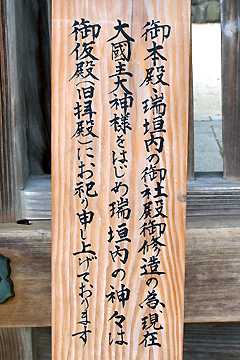 御本殿・瑞垣内の御社殿御修造の為、現在
大國主大神様をはじめ瑞垣内の神々は
御仮殿（旧拝殿）にお祀り申し上げております